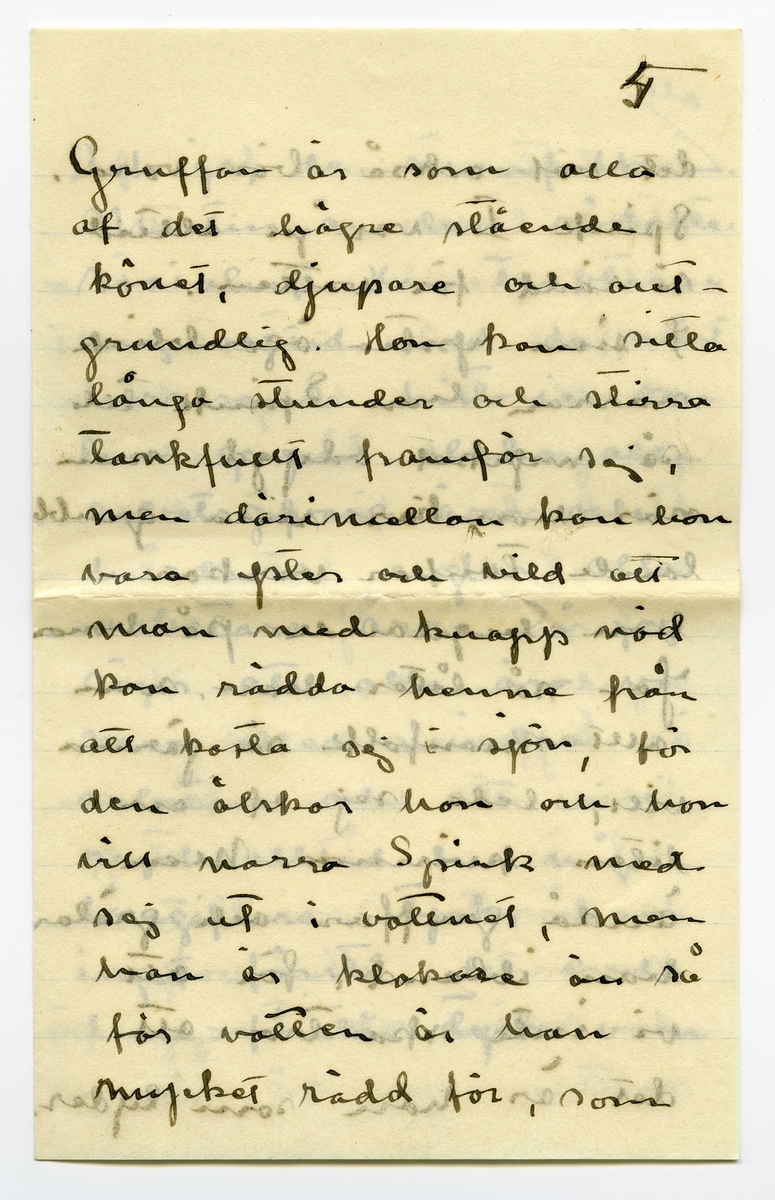 5
Gruffan är som alla
af det högre stående
könet, djupare och out-
grundlig. Hon kan sitta
långa stunder och stirra
tankfullt framför sig,
men därimellan kan hon
vara yster och vild att
man med knapp nöd
kan rädda henne från
att kasta sig i sjön, för
den älskar hon och hon
vill narra Spink med
sig ut i vattnet, men
han är klokare än så
för vatten är han
mycket rädd för, som